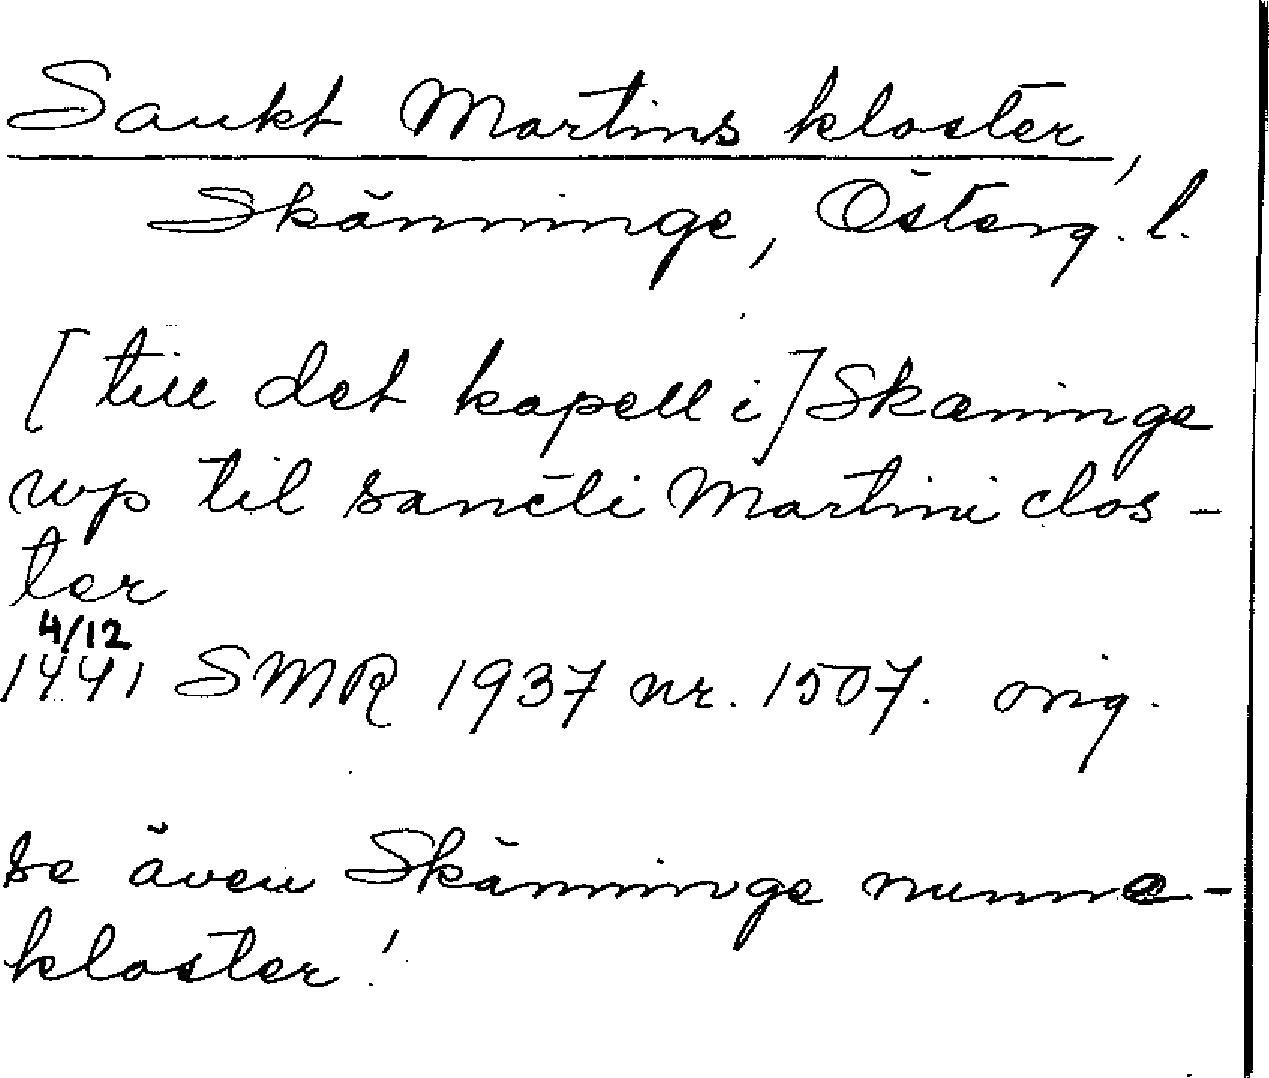 Sankt Martins kloster,
Skänninge, Österg. l.
[till det kapell i] Skæninge
wp til sancti Martini clos-
ter
4/12
1441 SMR 1937 nr. 1507. orig.
se även Skänninge nunne-
kloster!